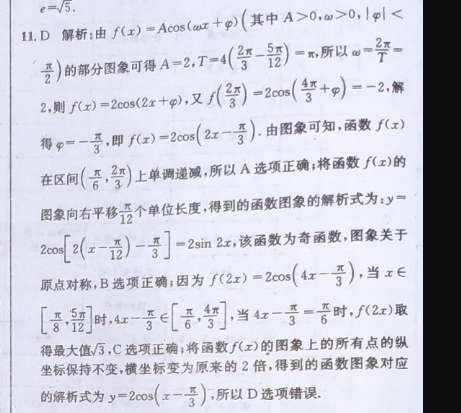 e=√5.
11. D 解析:由 f(x)=Acos(ωx+φ)(其中 A>0,ω>0,|φ|<
π/2)的部分图象可得 A=2,T=4(2π/3-5π/12)=π,所以 ω=2π/T=
2,则 f(x)=2cos(2x+φ),又 f(2π/3)=2cos(4π/3+φ)=-2,解
得 φ=-π/3,即 f(x)=2cos(2x-π/3).由图象可知,函数 f(x)
在区间(π/6,2π/3)上单调递减,所以 A 选项正确;将函数 f(x)的
图象向右平移π/12个单位长度,得到的函数图象的解析式为:y=
2cos[2(x-π/12)-π/3]=2sin 2x,该函数为奇函数,图象关于
原点对称,B 选项正确;因为 f(2x)=2cos(4x-π/3),当 x∈
[π/8,5π/12]时,4x-π/3∈[π/6,4π/3],当 4x-π/3=π/6时,f(2x)取
得最大值√3,C 选项正确;将函数 f(x)的图象上的所有点的纵
坐标保持不变,横坐标变为原来的 2 倍,得到的函数图象对应
的解析式为 y=2cos(x-π/3),所以 D 选项错误.